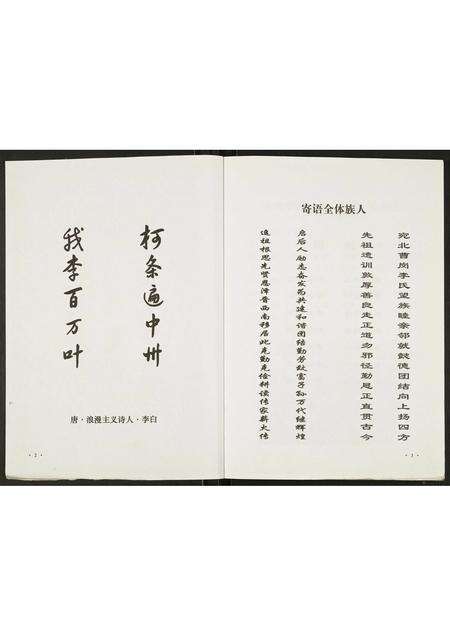 我李百万叶
柯条遍中州
唐·浪漫主义诗人·李白
·2·
寄语全体族人
宛北曹岗李氏望族睦亲邻就懿德团结向上扬四方
先祖遗训敦厚善良走正道勿邪径勤恳正直贯古今
启后人励志奋发共建和谐团结勤劳致富子孙万代继辉煌
追祖根思先贤恩泽晋西南移居此克勤克俭耕读传家薪火传
·3·